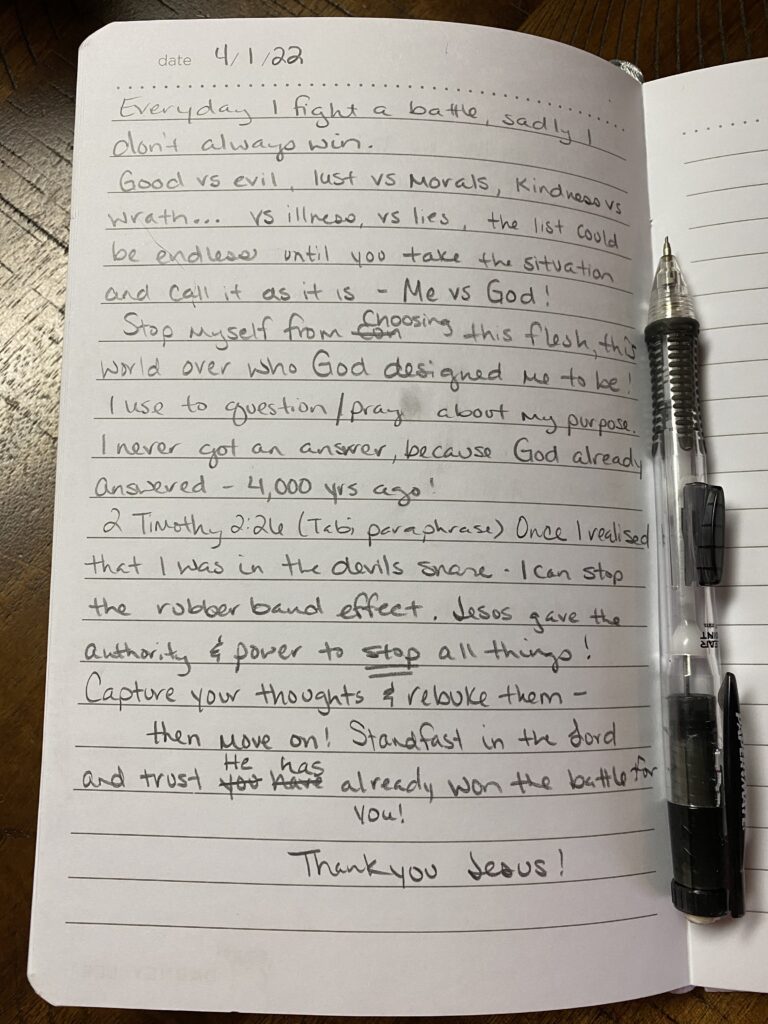 date 4/1/22
Everyday I fight a battle, sadly I
don't always win.
Good vs evil, lust vs Morals, Kindness vs
wrath... vs illness, vs lies, the list could
be endless until you take the situation
and call it as it is - Me vs God!
Stop myself from Con Choosing this flesh, this
world over who God designed me to be!
I use to question/pray about my purpose.
I never got an answer, because God already
answered - 4,000 yrs ago!
2 Timothy 2:26 (Tabi paraphrase) Once I realised
that I was in the devils snare - I can stop
the rubber band effect. Jesus gave the
authority & power to stop all things!
Capture your thoughts & rebuke them -
then move on! Standfast in the Lord
and trust you have He has already won the battle for
you!
Thankyou Jesus!